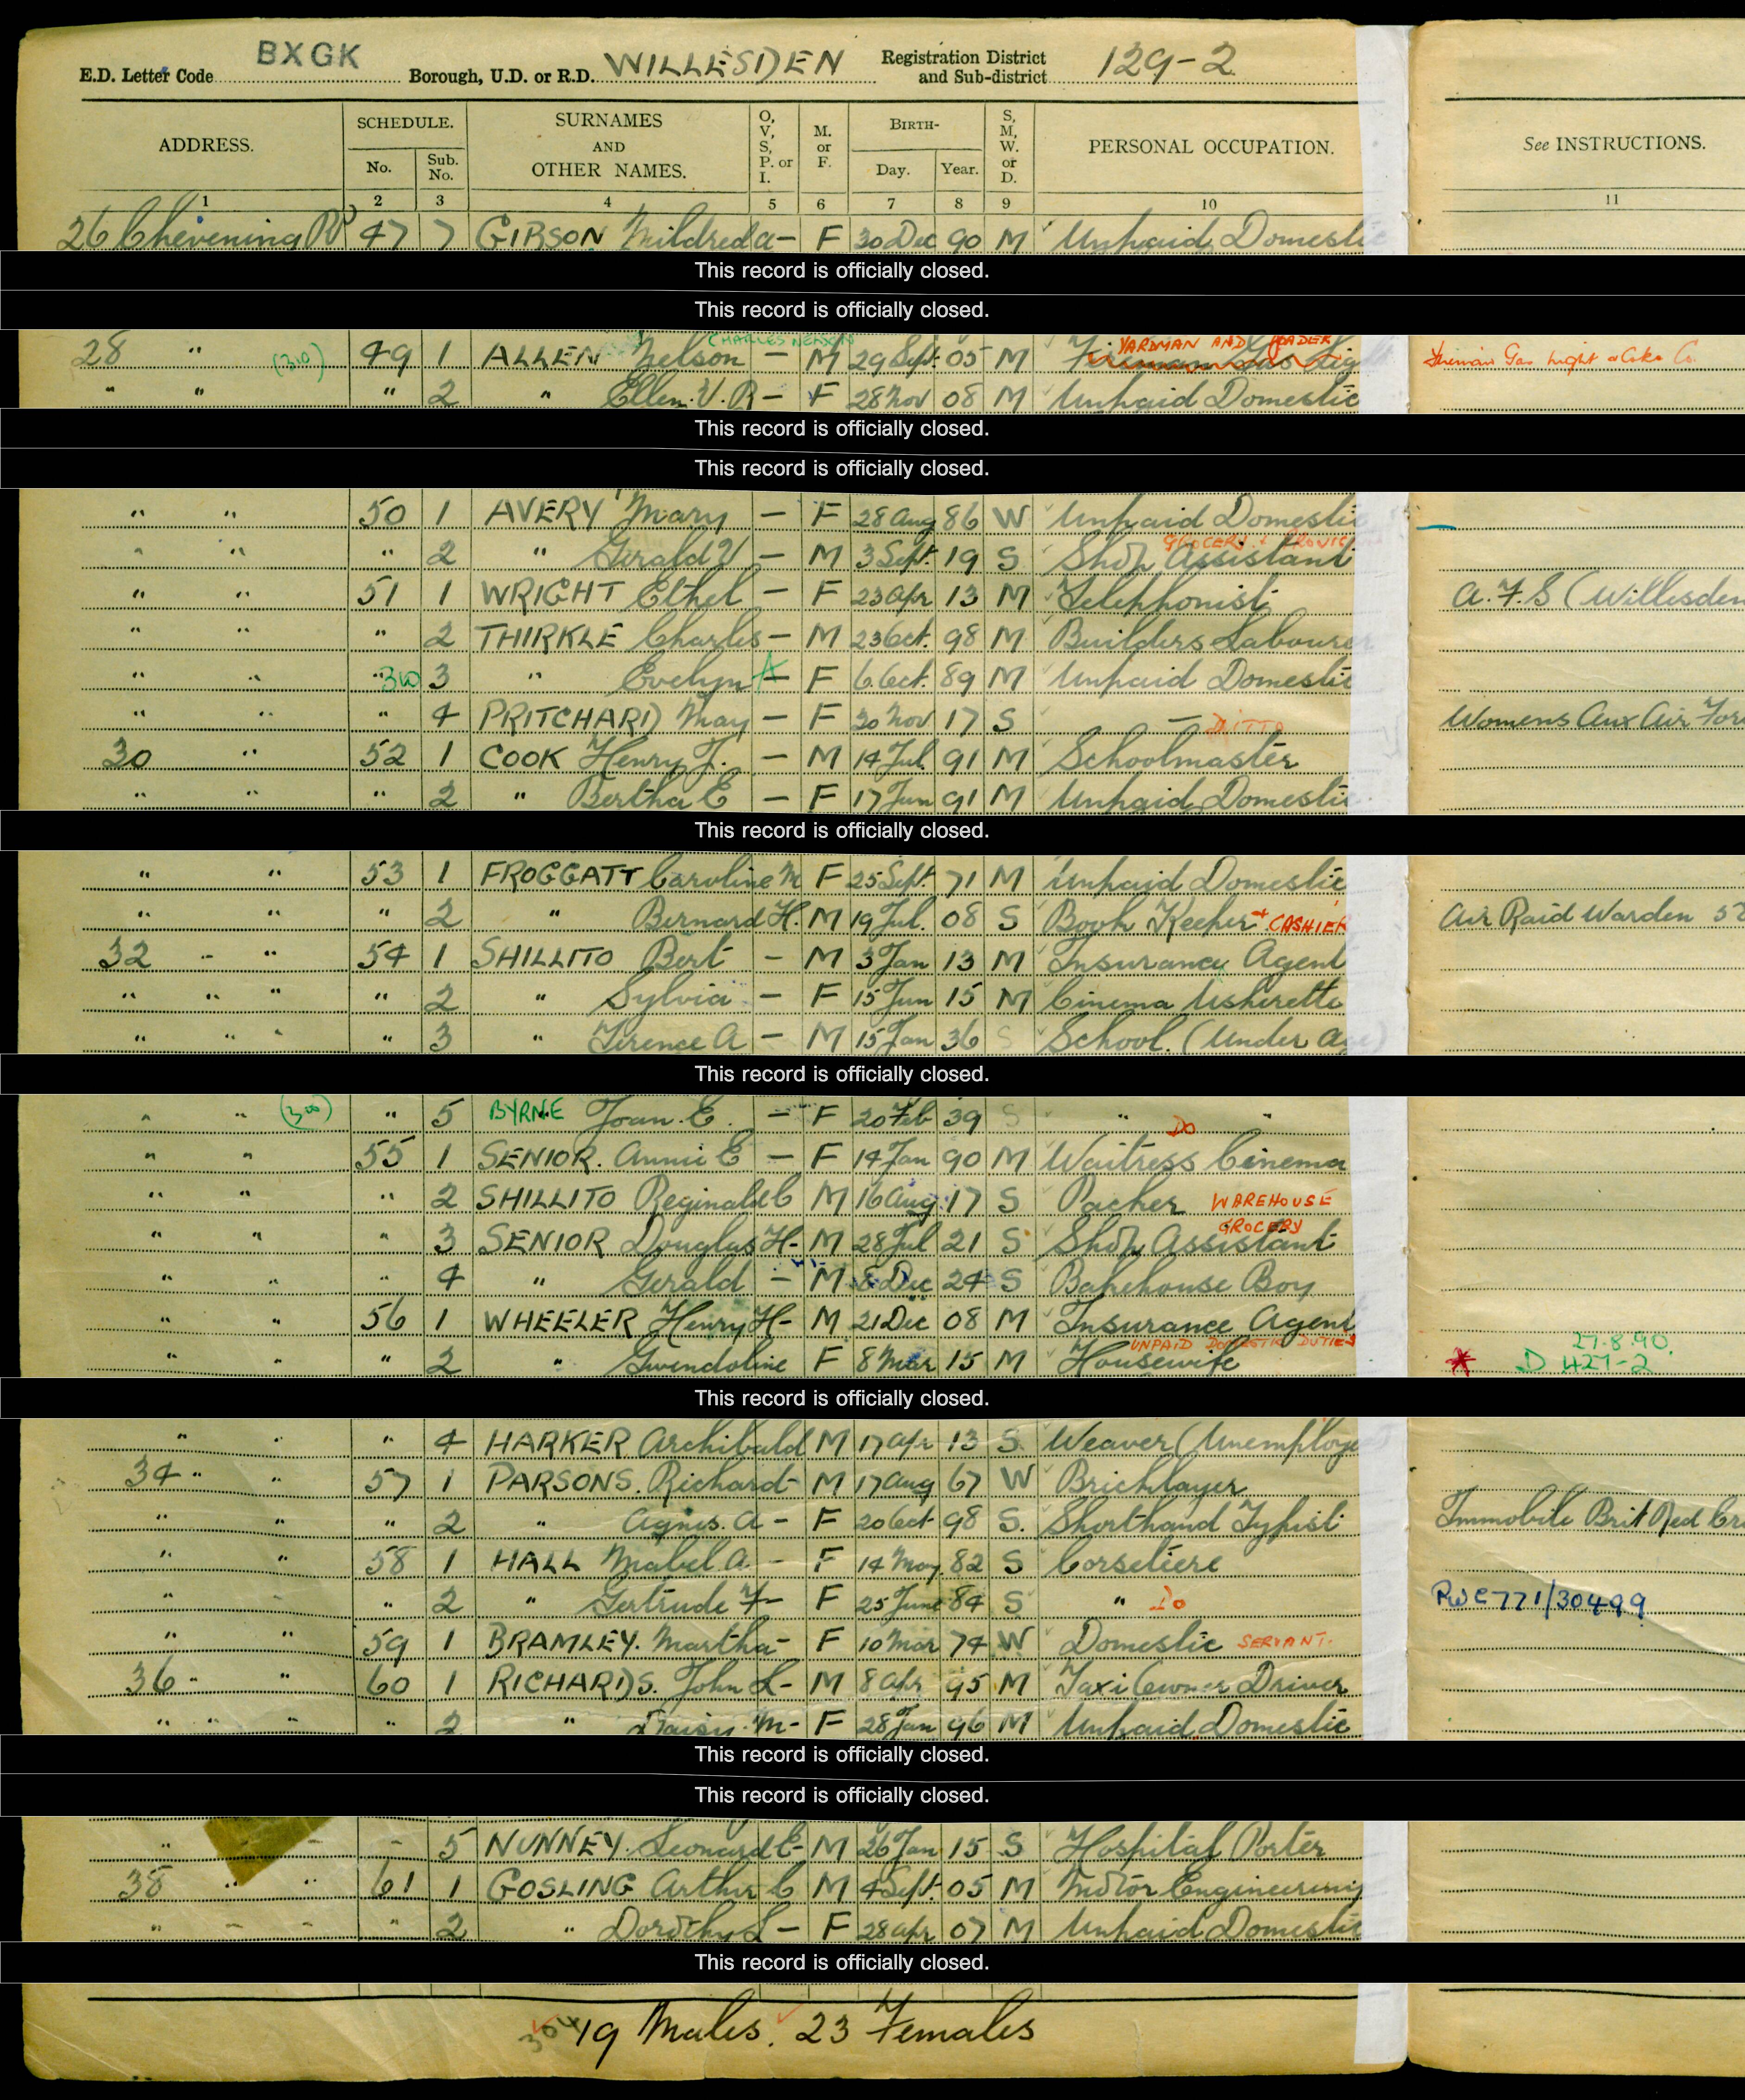 E.D. Letter Code BXGK Borough, U.D. or R.D. WILLESDEN Registration District and Sub-district 129-2
ADDRESS. SCHEDULE. No. Sub. No. SURNAMES AND OTHER NAMES. O, V, S, P. or I. M. or F. BIRTH- Day. Year. S, M, W. or D. PERSONAL OCCUPATION. See INSTRUCTIONS.
1 2 3 4 5 6 7 8 9 10 11
26 Chevening Rd 47 7 GIBSON Mildred A - F 30 Dec 90 M Unpaid Domestic
This record is officially closed.
This record is officially closed.
CHARLES NELSON YARDMAN AND LOADER
28 " (310) 49 1 ALLEN Nelson - M 29 Sept 05 M Fireman Gas Lig Fireman Gas Light & Coke Co.
" " " 2 " Ellen. V. R - F 28 Nov 08 M Unpaid Domestic
This record is officially closed.
This record is officially closed.
" " 50 1 AVERY Mary - F 28 Aug 86 W Unpaid Domestic
GROCERY & PROVIS
" " " 2 " Gerald V - M 3 Sept. 19 S Shop Assistant
" " 51 1 WRIGHT Ethel - F 23 Apr 13 M Telephonist A.F.S (Willesden
" " " 2 THIRKLE Charles - M 23 Oct. 98 M Builders Labourer
" " " 310 3 " Evelyn A - F 6 Oct. 89 M Unpaid Domestic
" " " 4 PRITCHARD May - F 30 Nov 17 S — DITTO Womens Aux Air For
30 " 52 1 COOK Henry J. - M 14 Jul 91 M Schoolmaster
" " " 2 " Bertha E - F 17 Jun 91 M Unpaid Domestic
This record is officially closed.
" " 53 1 FROGGATT Caroline M F 25 Sept. 71 M Unpaid Domestic
" " " 2 " Bernard H. M 19 Jul. 08 S Book Keeper + CASHIER Air Raid Warden 52
32 - " 54 1 SHILLITO Bert - M 3 Jan 13 M Insurance Agent
" " " " 2 " Sylvia - F 15 Jun 15 M Cinema Usherette
" " " " 3 " Terence A - M 15 Jan 36 S School. (Under Age)
This record is officially closed.
" " (300) " 5 BYRNE " Joan. E. - F 20 Feb 39 S " DO "
" " 55 1 SENIOR. Annie E - F 14 Jan 90 M Waitress Cinema
" " " 2 SHILLITO Reginald C M 16 Aug 17 S Packer WAREHOUSE
GROCERY
" " " 3 SENIOR Douglas H- M 28 Jul 21 S Shop Assistant
" " " 4 " Gerald - M 8 Dec 24 S Bakehouse Boy
" " 56 1 WHEELER Henry H- M 21 Dec 08 M Insurance Agent
UNPAID DOMESTIC DUTIES 27.8.90.
" " " 2 " Gwendoline F 8 Mar 15 M Housewife * D 427-2
This record is officially closed.
" " " 4 HARKER Archibald M 17 Apr 13 S. Weaver (Unemploye
34 " " 57 1 PARSONS. Richard - M 17 Aug 67 W Bricklayer
" " " 2 " Agnes. A - F 20 Oct 98 S. Shorthand Typist Immobile Brit Red Cr
" " 58 1 HALL Mabel A - F 14 May. 82 S Corsetiere
" " " 2 " Gertrude F- F 25 June 84 S " Do RWC771/30499
" " 59 1 BRAMLEY. Martha - F 10 Mar 74 W Domestic SERVANT.
36 " " 60 1 RICHARDS. John L- M 8 Apr 95 M Taxi Owner Driver
" " " " 2 " Daisy. M- F 28 Jan 96 M Unpaid Domestic
This record is officially closed.
This record is officially closed.
" - - - 5 NUNNEY. Leonard C- M 26 Jan 15 S Hospital Porter
38 " " 61 1 GOSLING Arthur C M 4 Sept. 05 M Motor Engineering
" - - " 2 " Dorothy L - F 28 Apr 07 M Unpaid Domestic
This record is officially closed.
19 Males. 23 Females